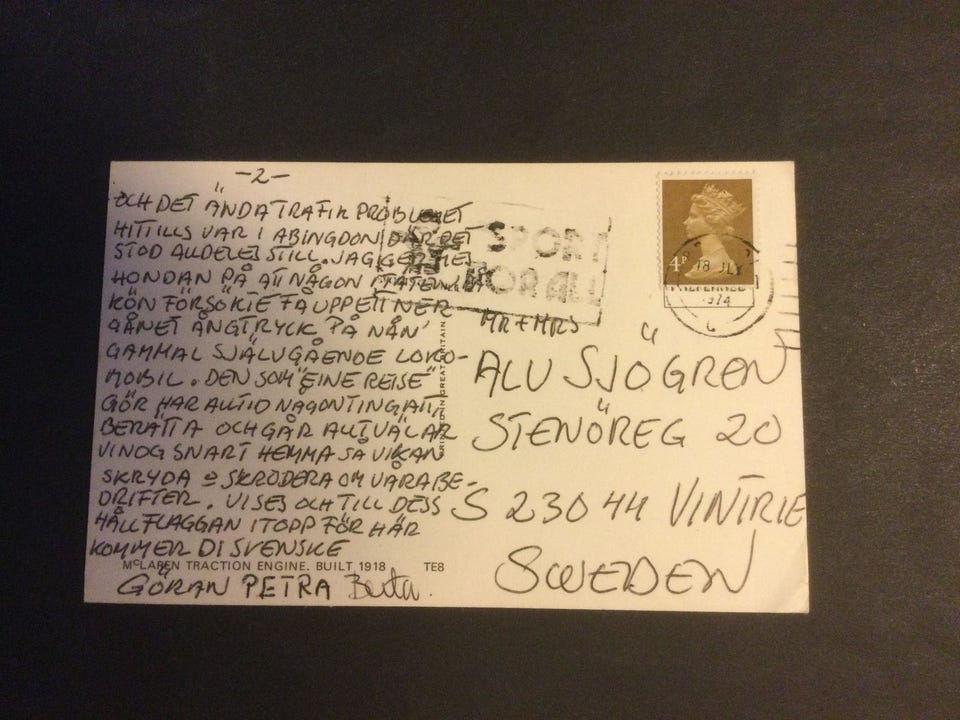 -2-
OCH DET ÄNDA TRAFIK PROBLEMET
HITTILLS VAR I ABINGDON DÄR DET
STOD ALLDELES STILL. JAG GER MEJ
HONDAN PÅ ATT NÅGON I
KÖN FÖRSÖKTE FÅ UPP ETT NER
GÅNET ÅNGTRYCK PÅ NÅN
GAMMAL SJÄLVGÅENDE LOKO-
MOBIL. DEN SOM "EINE REISE"
GÖR HAR ALLTID NÅGONTING ATT
BERÄTTA OCH GÅR ALLT VÄL ÄR
VI NOG SNART HEMMA SÅ VI KAN
SKRYDA O SKRÖDERA OM VÅRA BE-
DRIFTER. VI SES OCH TILL DESS
HÅLL FLAGGAN I TOPP FÖR HÄR
KOMMER DI SVENSKE
MCLAREN TRACTION ENGINE. BUILT 1918 TE8
GÖRAN PETRA
PRINTED IN GREAT BRITAIN
SPORT
FOR ALL
4P
18 JLY
1974
MR + MRS
ALV SJÖGREN
STENÖREG 20
S 23044 VINTRIE
SWEDEN